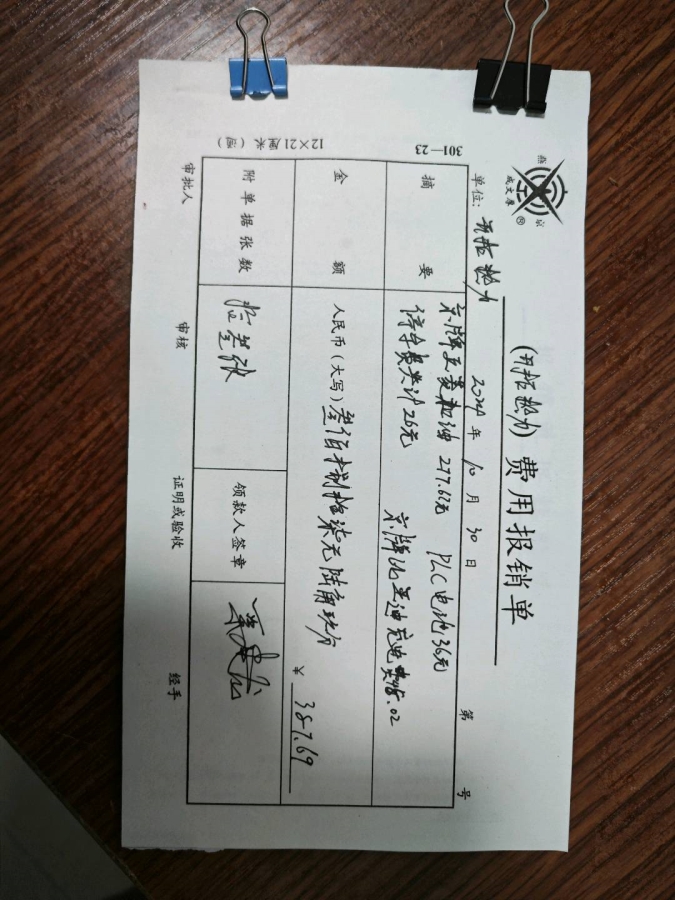 燕 京
成文厚 ®
(开拓热力) 费用报销单
单位: 开拓热力 2024 年 10 月 30 日 第 号
摘要 京牌五菱加油 277.67元 PLC电池36元
停车费共计26元 京牌比亚迪充电费48.02
金额 人民币(大写) 叁佰捌拾柒元陆角玖分 ¥ 387.69
附单据张数 领款人签章
审批人 审核 证明或验收 经手
301—23 12×21厘米(通)